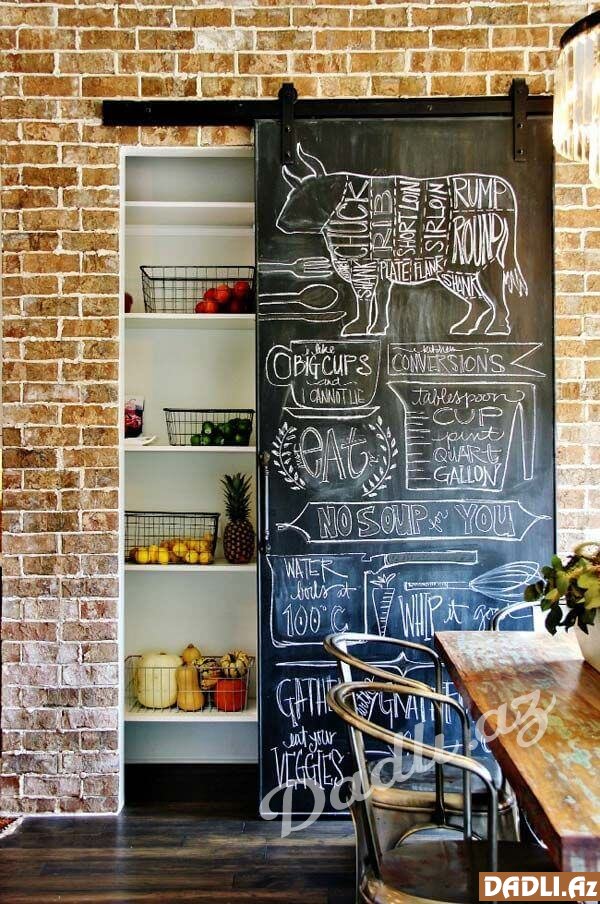 CHUCK
RIB
SHORT LOIN
SIRLOIN
RUMP
ROUND
SHANK
PLATE
FLANK
SHANK
i like
BIG CUPS
and
I CANNOT LIE
kitchen
CONVERSIONS
tablespoon
CUP
pint
QUART
GALLON
eat
NO SOUP for YOU
WATER
boils at
100°C
WHIP it good
GATHER
eat your
VEGGIES
Dadli.az
DADLI.Az